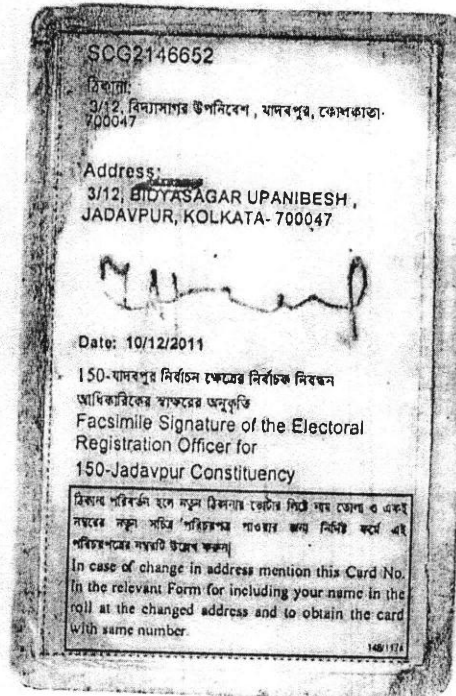 SCG2146652
ঠিকানা:
3/12, বিদ্যাসাগর উপনিবেশ , যাদবপুর, কোলকাতা-
700047
Address:
3/12, BIDYASAGAR UPANIBESH ,
JADAVPUR, KOLKATA- 700047
Date: 10/12/2011
150-যাদবপুর নির্বাচন ক্ষেত্রের নির্বাচক নিবন্ধন
আধিকারিকের স্বাক্ষরের অনুকৃতি
Facsimile Signature of the Electoral
Registration Officer for
150-Jadavpur Constituency
ঠিকানা পরিবর্তন হলে নতুন ঠিকানার ভোটার লিষ্টে নাম তোলা ও একই
নম্বরের নতুন সচিত্র পরিচয়পত্র পাওয়ার জন্য নির্দিষ্ট ফর্মে এই
পরিচয়পত্রের নম্বরটি উল্লেখ করুন।
In case of change in address mention this Card No.
in the relevant Form for including your name in the
roll at the changed address and to obtain the card
with same number.